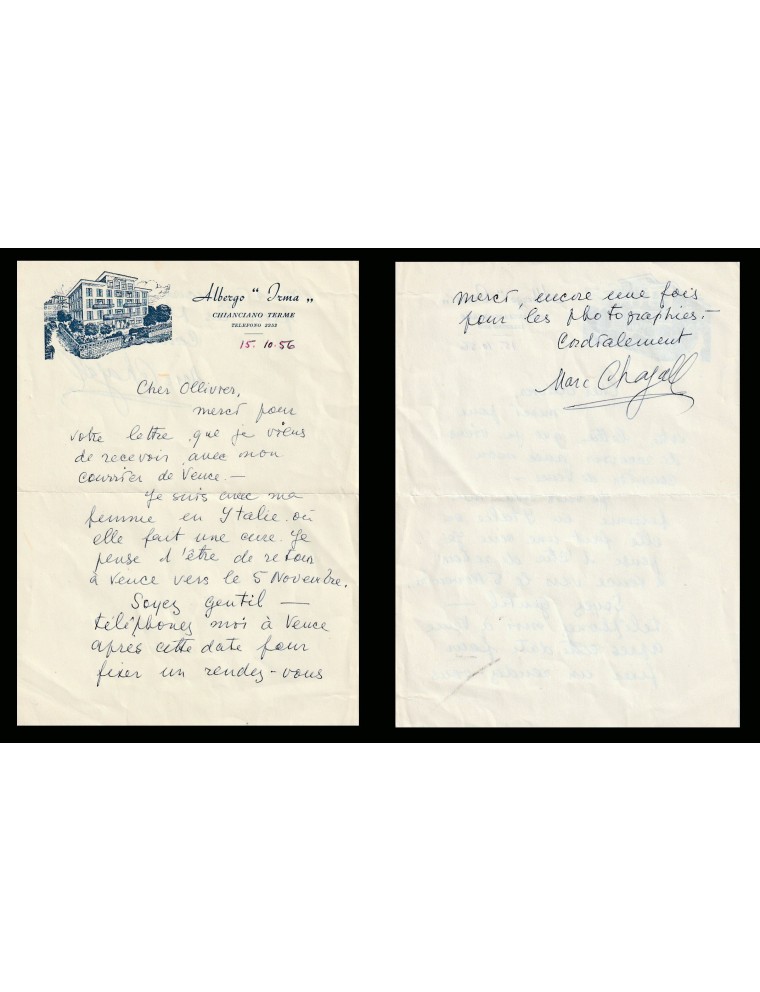 Albergo " Irma "
CHIANCIANO TERME
TELEFONO 2252
15. 10. 56
Cher Ollivier,
merci pour
votre lettre que je viens
de recevoir avec mon
courrier de Vence. —
Je suis avec ma
femme en Italie où
elle fait une cure. Je
pense d'être de retour
à Vence vers le 5 Novembre.
Soyez gentil —
téléphonez moi à Vence
après cette date pour
fixer un rendez-vous
merci, encore une fois
pour les photographies. —
Cordialement
Marc Chagall